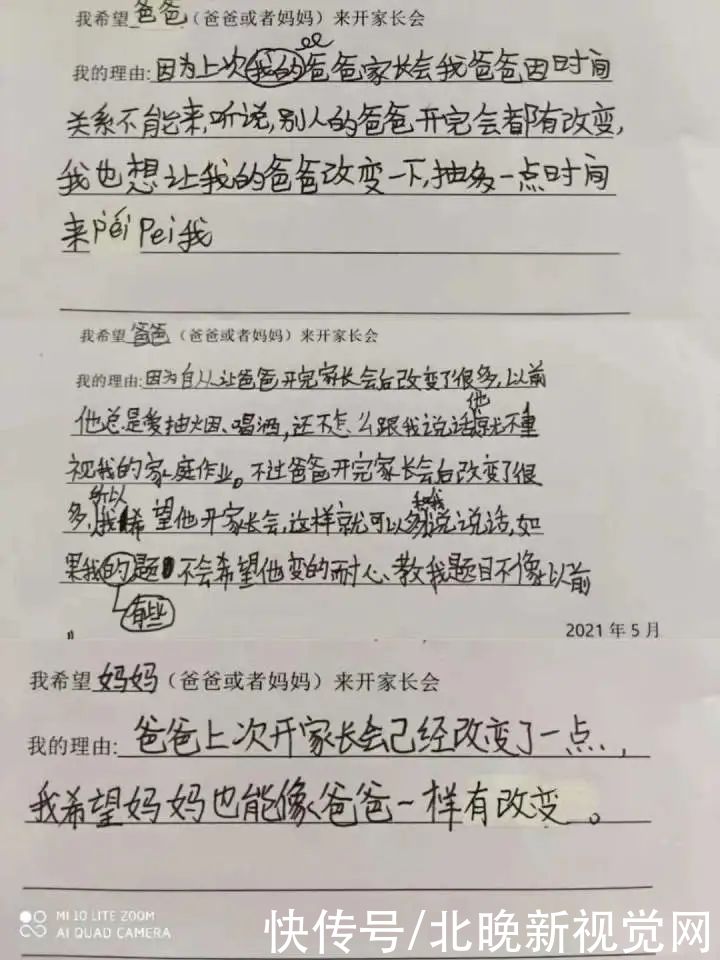 我希望爸爸（爸爸或者妈妈）来开家长会
我的理由:因为上次我的爸爸家长会我爸爸因时间
关系不能来,听说,别人的爸爸开完会都有改变,
我也想让我的爸爸改变一下,抽多一点时间
来péi Pei我
我希望爸爸（爸爸或者妈妈）来开家长会
我的理由:因为自从让爸爸开完家长会后改变了很多,以前
他
他总是爱抽烟、喝酒,还不怎么跟我说话就不重
视我的家庭作业。不过爸爸开完家长会后改变了很
所以 和我
多,我希望他开家长会,这样就可以多说说话,如
果我的题不会希望他变的耐心、教我题目不像以前
有些
。
2021年5月
我希望妈妈（爸爸或者妈妈）来开家长会
我的理由:爸爸上次开家长会已经改变了一点,
我希望妈妈也能像爸爸一样有改变。
MI 10 LITE ZOOM
AI QUAD CAMERA
快传号/北晚新视觉网